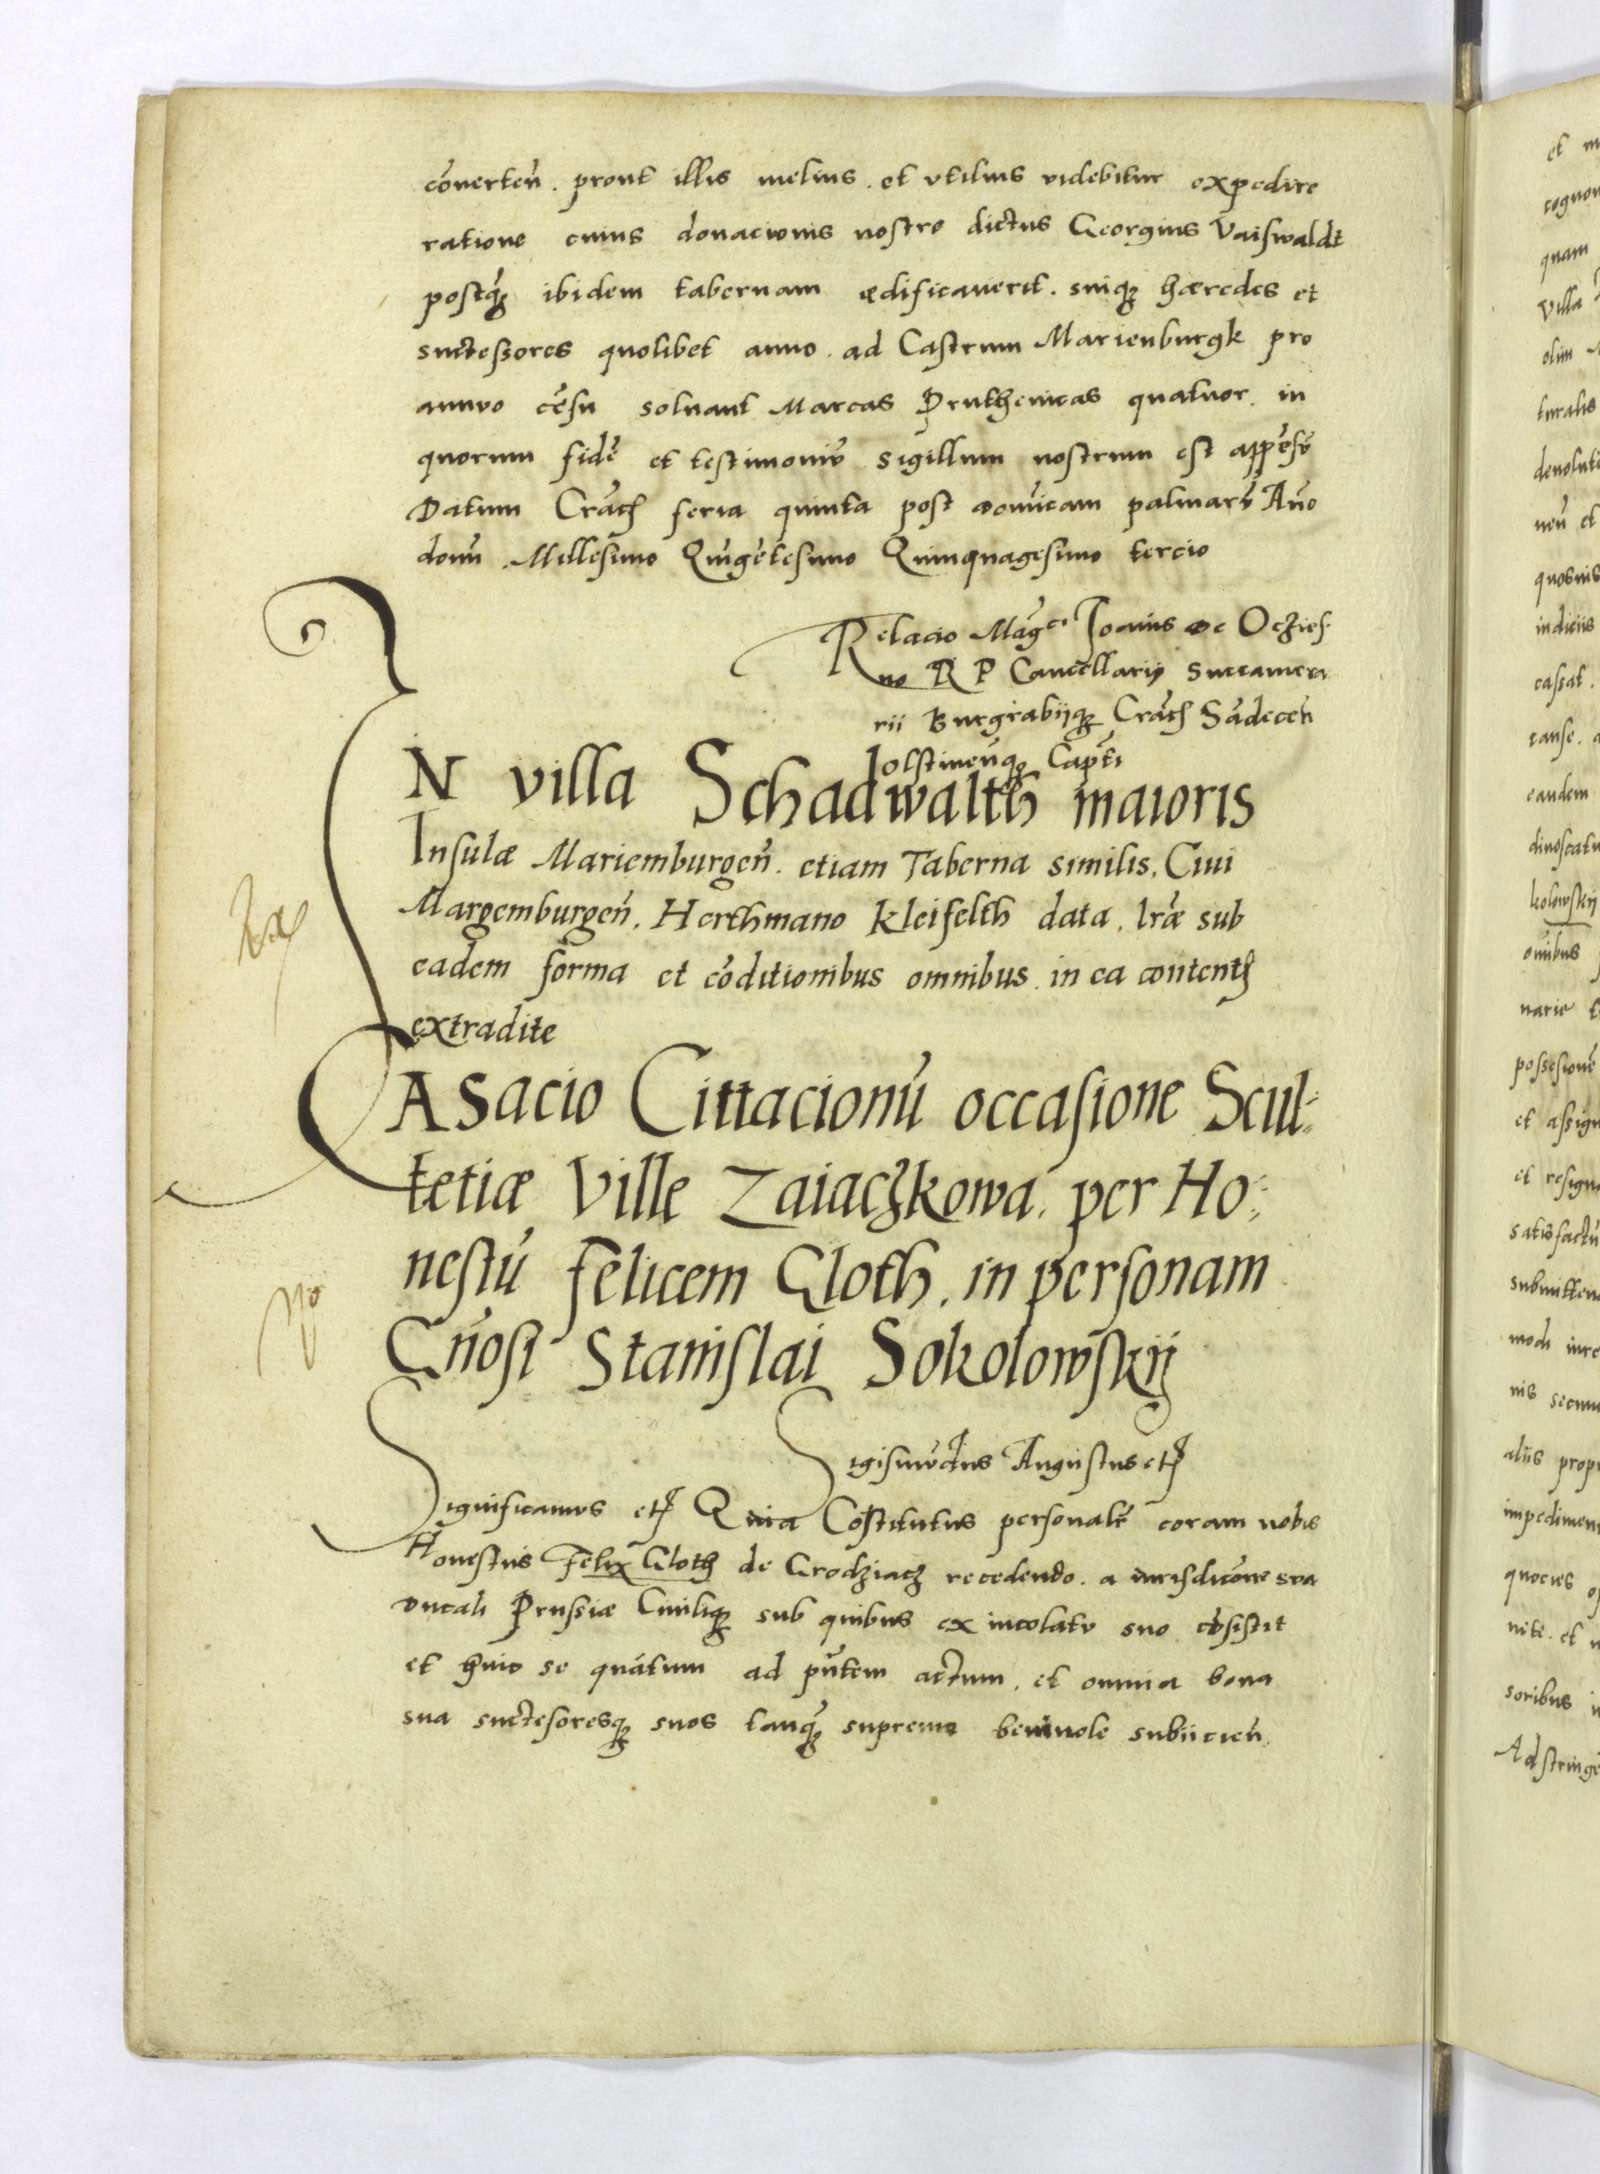 cōnerteñ. prout illis melius. et vtilius videbitur expedire
ratione cuius donacionis nostre dictus Georgius Vaiswaldt
postq̃ꝫ ibidem tabernam ædificauerit. suiqꝫ hæredes et
successores quolibet anno. ad Castrum Marienburgk pro
annuo cẽsu soluant Marcas Pruthenicas quatuor. in
quorum fidẽ et testimoniũ sigillum nostrum est appẽsũ
Datum Crac̃ feria quinta post domĩcam palmarũ Año
domĩ. Millesimo Quĩgẽtesimo Quinquagesimo tercio
Relacio Mag̃ci Joañis de Oczies
no R P Cancellarij Succamera
rii Burgrabijqꝫ Crac̃ Sãdeceñ
Jolstineñqꝫ Capt̃i
IN villa Schadwalth maioris
Insulæ Mariemburgeñ. etiam Taberna similis. Ciui
Margemburgeñ. Herthmano Kleifelth data. lr̃æ sub
eadem forma et cõditionibus omnibus. in ea contentꝭ
extradite
CASacio Cittacionũ occasione Scul-
tetiæ Ville Zaiaczkowa. per Ho-
nestũ Felicem Gloth. in personam
Gñosi Stanislai Sokolowskij
Sigismũdus Augustus etc̃
Significamus etc̃ Quia Cõstitutus personalr̃ coram nobis
Honestus Felix Gloth de Grodziacz recedendo. a iurisdicõne sva
Ducali Prussiæ Ciuiliqꝫ sub quibus ex incolatu suo cõsistit
et huic se quãtum ad pñtem actum. et omnia bona
sua successoresqꝫ suos tanq̃ꝫ supreme beniuole subiicieñ.
et
cognom
quam
Villa
olim
turalis
deuoluti
neñ et
quosuis
indiciis
cassat.
cause.
eandem
dinoscatu
kolowskij
oĩbus
narie
possesionẽ
et assign
et resign
satisfactũ
submitten
modi iure
nis secun
aliis propr
impedimen
quocies
nite. et
soribus
Adstringe